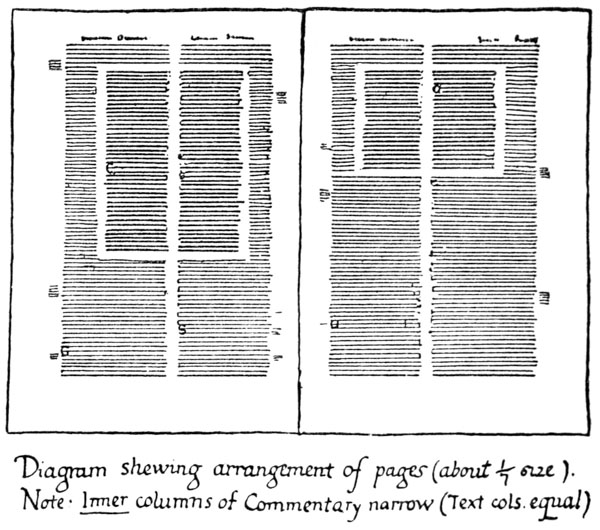 Diagram shewing arrangement of pages (about 1/7 size).
Note· Inner columns of Commentary narrow (Text cols. equal)